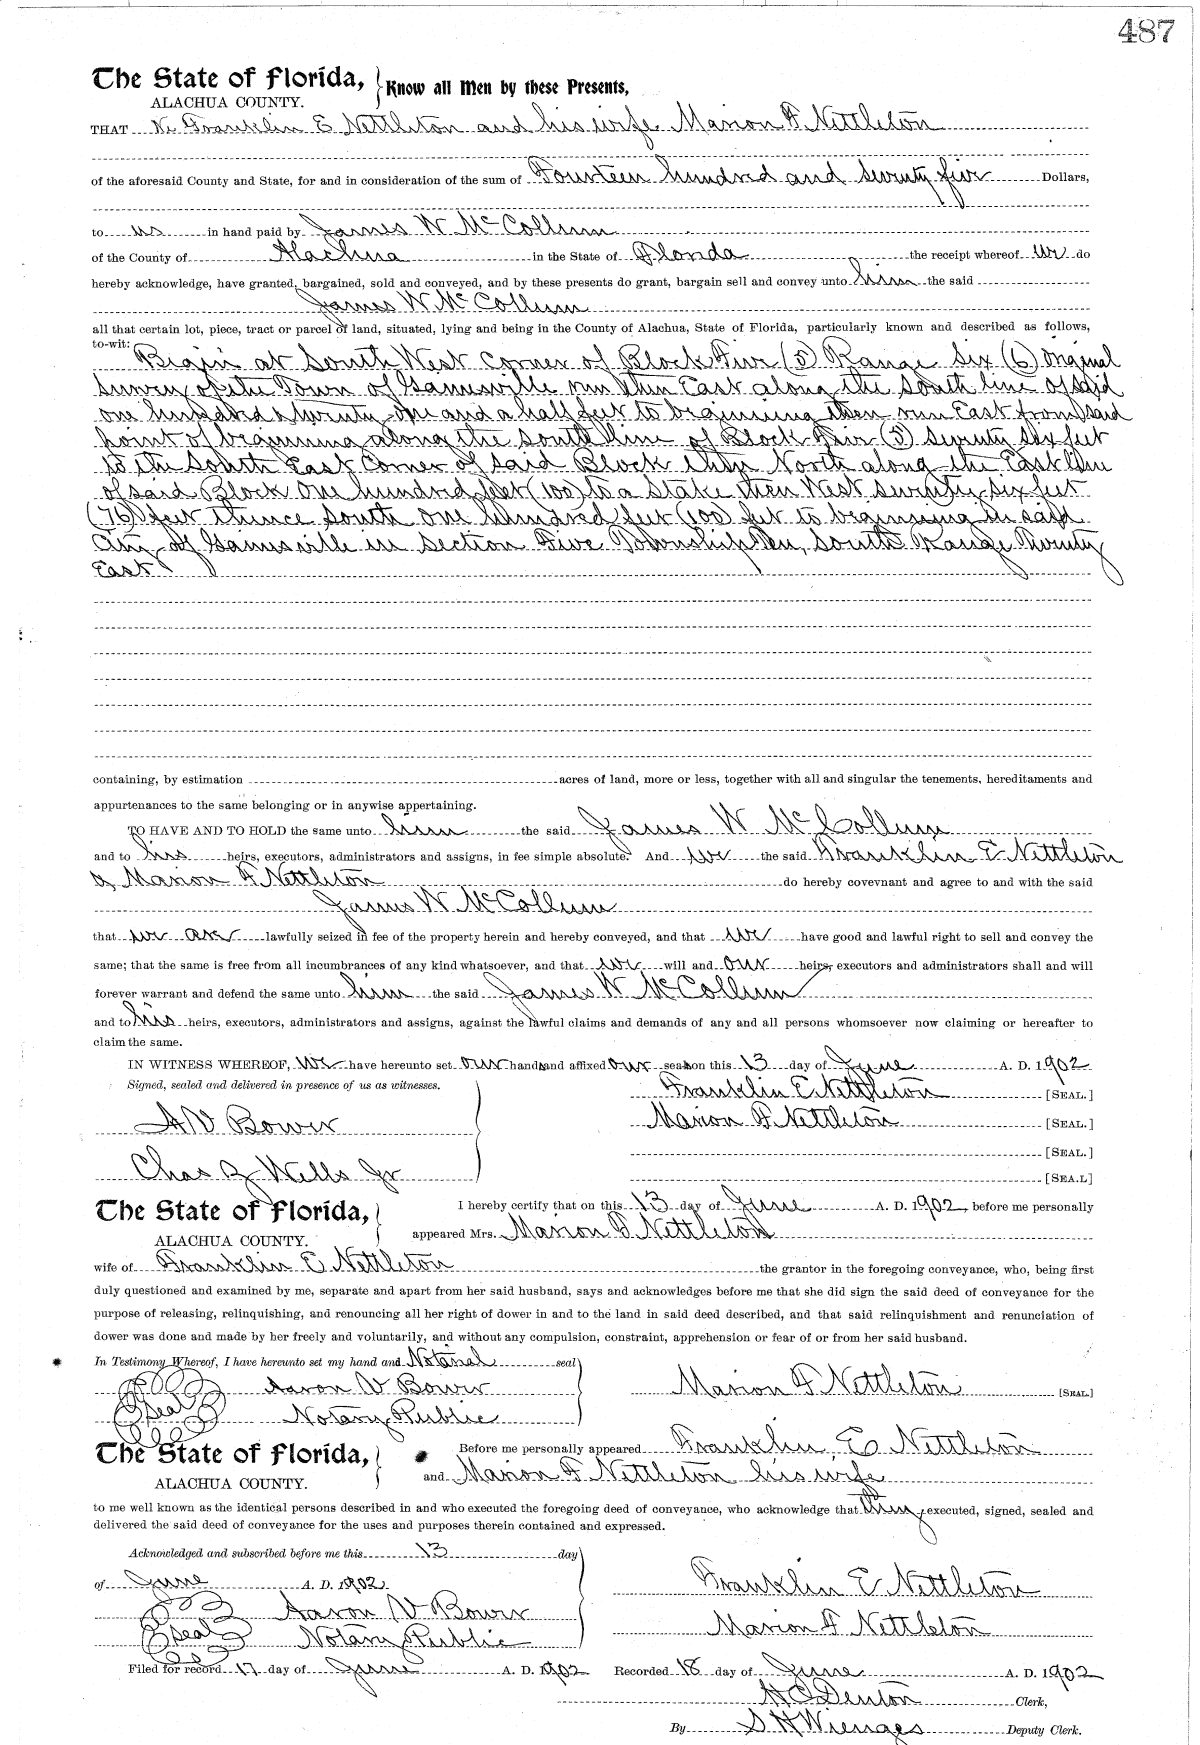 487
The State of Florida, } Know all Men by these Presents,
ALACHUA COUNTY.
THAT We Franklin E Nettleton and his wife Marion F Nettleton
of the aforesaid County and State, for and in consideration of the sum of Fourteen hundred and seventy five Dollars,
to us in hand paid by James W McCollum
of the County of Alachua in the State of Florida the receipt whereof we do
hereby acknowledge, have granted, bargained, sold and conveyed, and by these presents do grant, bargain sell and convey unto him the said
James W McCollum
all that certain lot, piece, tract or parcel of land, situated, lying and being in the County of Alachua, State of Florida, particularly known and described as follows,
to-wit:
Begin at South West Corner of Block Five (5) Range Six (6) Original
survey of the Town of Gainesville run then East along the South line of said
one hundred & twenty one and a half feet to beginning then run East from said
point of beginning along the south line of Block Five (5) seventy six feet
to the South East Corner of said Block then North along the East line
of said Block One hundred feet (100) to a Stake then West seventy six feet
(76) feet thence South One hundred feet (100) feet to beginning in said
City of Gainesville in Section Five Township Ten, South Range Twenty
East
containing, by estimation acres of land, more or less, together with all and singular the tenements, hereditaments and
appurtenances to the same belonging or in anywise appertaining.
TO HAVE AND TO HOLD the same unto him the said James W McCollum
and to his heirs, executors, administrators and assigns, in fee simple absolute. And we the said Franklin E Nettleton
& Marion F Nettleton do hereby covevnant and agree to and with the said
James W McCollum
that we are lawfully seized in fee of the property herein and hereby conveyed, and that we have good and lawful right to sell and convey the
same; that the same is free from all incumbrances of any kind whatsoever, and that we will and our heirs, executors and administrators shall and will
forever warrant and defend the same unto him the said James W McCollum
and to his heirs, executors, administrators and assigus, against the lawful claims and demands of any and all persons whomsoever now claiming or hereafter to
claim the same.
IN WITNESS WHEREOF, we have hereunto set our hands and affixed our seals on this 13 day of June A. D. 1902
Signed, sealed and delivered in presence of us as witnesses.
Franklin E Nettleton [SEAL.]
A V Bower
Marion F Nettleton [SEAL.]
[SEAL.]
Chas B Wells Jr
[SEA.L]
The State of Florida, I hereby certify that on this 13 day of June A. D. 1902 before me personally
ALACHUA COUNTY. appeared Mrs. Marion F Nettleton
wife of Franklin E Nettleton the grantor in the foregoing conveyance, who, being first
duly questioned and examined by me, separate and apart from her said husband, says and acknowledges before me that she did sign the said deed of conveyance for the
purpose of releasing, relinquishing, and renouncing all her right of dower in and to the land in said deed described, and that said relinquishment and renunciation of
dower was done and made by her freely and voluntarily, and without any compulsion, constraint, apprehension or fear of or from her said husband.
In Testimony Whereof, I have hereunto set my hand and Notarial seal
Seal Aaron V Bower Marion F Nettleton [SEAL.]
Notary Public
The State of Florida, Before me personally appeared Franklin E Nettleton
ALACHUA COUNTY. and Marion F Nettleton his wife
to me well known as the identical persons described in and who executed the foregoing deed of conveyance, who acknowledge that they executed, signed, sealed and
delivered the said deed of conveyance for the uses and purposes therein contained and expressed.
Acknowledged and subscribed before me this 13 day
of June A. D. 1902 Franklin E Nettleton
Seal Aaron V Bower Marion F Nettleton
Notary Public
Filed for record 17 day of June A. D. 1902 Recorded 18 day of June A. D. 1902
H C Denton Clerk,
By S H Wienges Deputy Clerk.